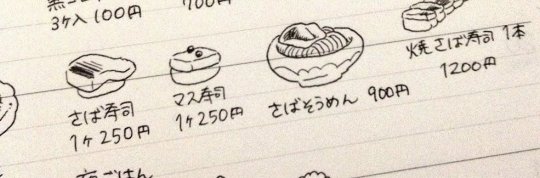 3ヶ入100円
700円
さば寿司
1ケ250円
マス寿司
1ケ250円
さばそうめん 900円
焼さば寿司 1本
1200円
夜ごはん